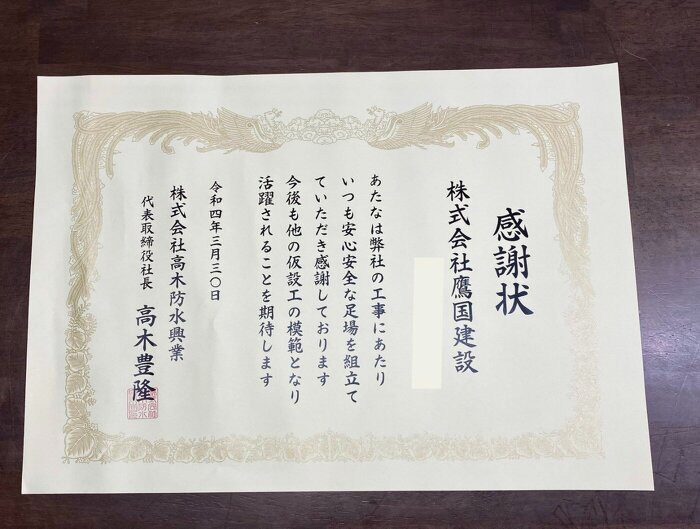 感謝状
株式会社鷹国建設
あたなは弊社の工事にあたり
いつも安心安全な足場を組立て
ていただき感謝しております
今後も他の仮設工の模範となり
活躍されることを期待します
令和四年三月三〇日
株式会社高木防水興業
代表取締役社長 高木豊隆